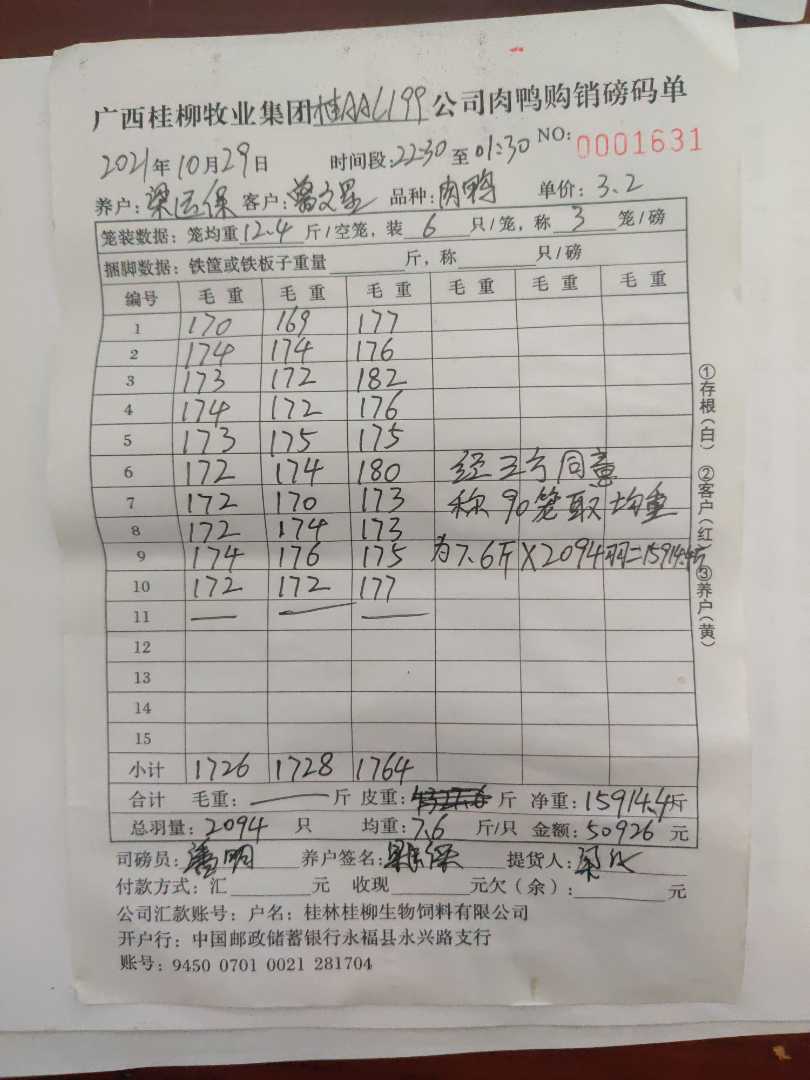 广西桂柳牧业集团桂AAL199公司肉鸭购销磅码单
2021年10月29日 时间段:22:30至01:30 NO: 0001631
养户: 客户:曾文星 品种:肉鸭 单价:3.2
笼装数据:笼均重12.4斤/空笼,装6只/笼,称3笼/磅
捆脚数据:铁筐或铁板子重量 斤,称 只/磅
编号 毛重 毛重 毛重 毛重 毛重 毛重
1 170 169 177
2 174 174 176
3 173 172 182
4 174 172 176
5 173 175 175
6 172 174 180 经 同意
7 172 170 173 称90笼取均重
8 172 174 173
9 174 176 175 为7.6斤X2094羽=15914.4斤
10 172 172 177
11 — — —
12
13
14
15
小计 1726 1728 1764
合计 毛重:— 斤 皮重: 斤 净重:15914.4斤
总羽量:2094 只 均重:7.6 斤/只 金额:50926元
司磅员: 养户签名: 提货人:
付款方式:汇 元 收现 元欠(余): 元
公司汇款账号:户名:桂林桂柳生物饲料有限公司
开户行:中国邮政储蓄银行永福县永兴路支行
账号:9450 0701 0021 281704
①存根(白) ②客户(红) ③养户(黄)